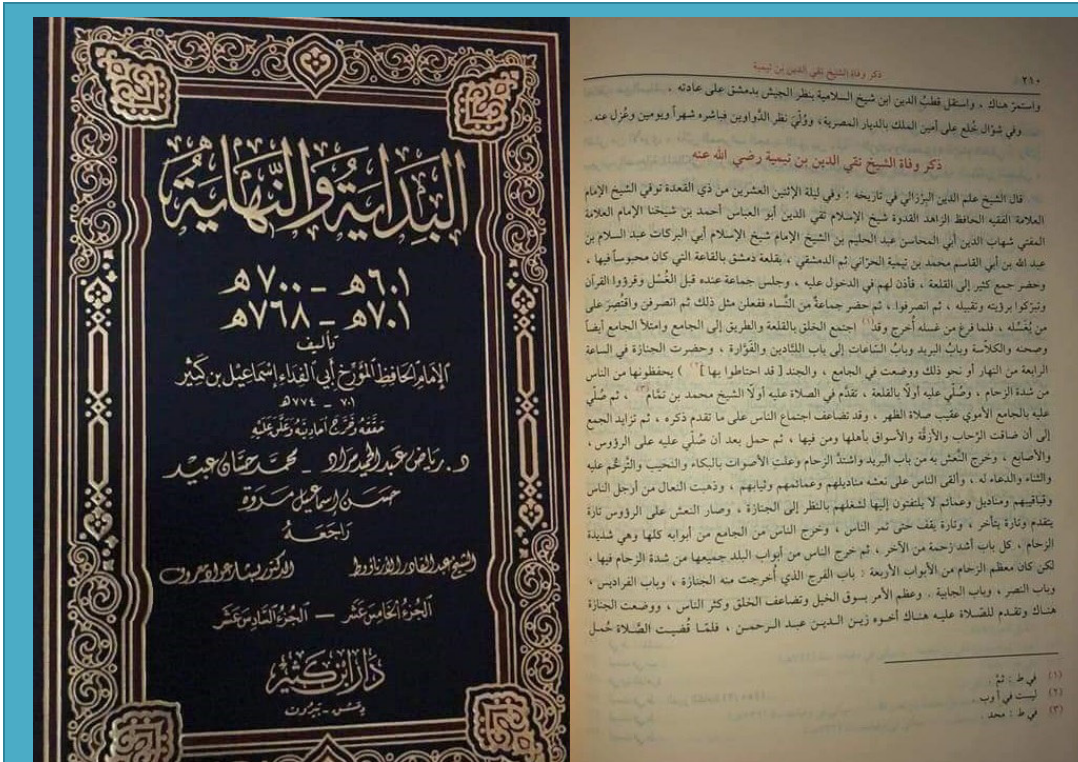 البداية والنهاية
٦٠١ھ - ٧٠٠ھ
٧٠١ھ - ٧٦٨ھ
تأليف
الإمام الحافظ المؤرخ أبي الفداء إسماعيل بن كثير
٧٠١ - ٧٧٤ھ
حققه وخرج أحاديثه وعلق عليه
د. رياض عبد الحميد مراد - محمد حسان عبيد
حسن إسماعيل مروة
راجعه
الشيخ عبد القادر الأرناؤوط الدكتور بشار عواد معروف
الجزء الخامس عشر - الجزء السادس عشر
دار ابن كثير
دمشق - بيروت
٢١٠ ذكر وفاة الشيخ تقي الدين بن تيمية
واستمرّ هناك ، واستقل قطبُ الدين ابن شيخ السلامية بنظر الجيش بدمشق على عادته .
وفي شوّال خُلع على أمين الملك بالديار المصرية، ووُلّيَ نظر الدَّواوين فباشره شهراً ويومين وعُزل عنه .
ذكر وفاة الشيخ تقي الدين بن تيمية رضي الله عنه
قال الشيخ علم الدين البِرْزالي في تاريخه : وفي ليلة الإثنين العشرين من ذي القعدة توفيَ الشيخ الإمام
العلامة الفقيه الحافظ الزاهد القدوة شيخ الإسلام تقي الدين أبو العباس أحمد بن شيخنا الإمام العلامة
المفتي شهاب الدين أبي المحاسن عبد الحليم بن الشيخ الإمام شيخ الإسلام أبي البركات عبد السلام بن
عبد الله بن أبي القاسم محمد بن تيمية الحرّاني ثم الدمشقي ، بقلعة دمشق بالقاعة التي كان محبوساً فيها ،
وحضر جمع كثير إلى القلعة ، فأذن لهم في الدخول عليه ، وجلس جماعة عنده قبل الغُسْل وقرؤوا القرآن
وتبرّكوا برؤيته وتقبيله ، ثم انصرفوا ، ثم حضر جماعةٌ من النِّساء ففعلن مثل ذلك ثم انصرفن واقتُصِرَ على
من يُغَسّله ، فلما فرغ من غسله أُخرج وقد(١) اجتمع الخلق بالقلعة والطريق إلى الجامع وامتلأ الجامع أيضاً
وصحنه والكلاّسة وبابُ البريد وبابُ السّاعات إلى باب اللبّادين والفَوّارة ، وحضرت الجنازة في الساعة
الرابعة من النهار أو نحو ذلك ووضعت في الجامع ، والجند [ قد احتاطوا بها ](٢) يحفظونها من الناس
من شدة الزحام ، وصُلّي عليه أولًا بالقلعة ، تقدّم في الصلاة عليه أولًا الشيخ محمد بن تمّام(٣) ، ثم صُلّي
عليه بالجامع الأموي عقيب صلاة الظهر ، وقد تضاعف اجتماع الناس على ما تقدم ذكره ، ثم تزايد الجمع
إلى أن ضاقت الرِّحاب والأزقّة والأسواق بأهلها ومن فيها ، ثم حمل بعد أن صُلّي عليه على الرؤوس،
والأصابع ، وخرج النَّعش به من باب البريد واشتدَّ الزحام وعلتِ الأصوات بالبكاء والنحيب والتَّرحُّم عليه
والثناء والدعاء له ، وألقى الناس على نعشه مناديلهم وعمائمهم وثيابهم ، وذهبت النعال من أرجل الناس
وقباقيبهم ومناديل وعمائم لا يلتفتون إليها لشغلهم بالنظر إلى الجنازة ، وصار النعش على الرؤوس تارة
يتقدم وتارة يتأخر ، وتارة يقف حتى تمر الناس ، وخرج الناس من الجامع من أبوابه كلها وهي شديدة
الزحام ، كل باب أشد زحمة من الآخر ، ثم خرج الناس من أبواب البلد جميعها من شدة الزحام فيها ،
لكن كان معظم الزحام من الأبواب الأربعة : باب الفرج الذي أُخرجت منه الجنازة ، وباب الفراديس ،
وباب النصر ، وباب الجابية . وعظم الأمر بسوق الخيل وتضاعف الخلق وكثر الناس ، ووضعت الجنازة
هناك وتقدم للصَّلاة عليه هناك أخوه زين الدين عبد الرحمن ، فلمّا قُضيت الصَّلاة حُمل
(١) في ط : ثمّ .
(٢) ليست في أ وب .
(٣) في ط : محد .